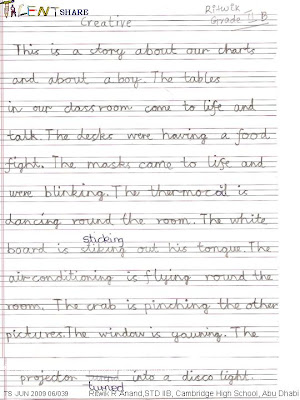 TALENTSHARE
Ritwik
Grade II B
Creative
This is a story about our charts
and about a boy. The tables
in our classroom come to life and
talk. The desks were having a food
fight. The masks came to life and
were blinking. The thermocoil is
dancing round the room. The white
sticking
board is out his tongue. The
air conditioning is flying round the
room. The crab is pinching the other
pictures. The window is yawning. The
projector into a disco light.
turned
TS JUN 2009 06/039 Ritwik R Anand,STD IIB, Cambridge High School, Abu Dhabi